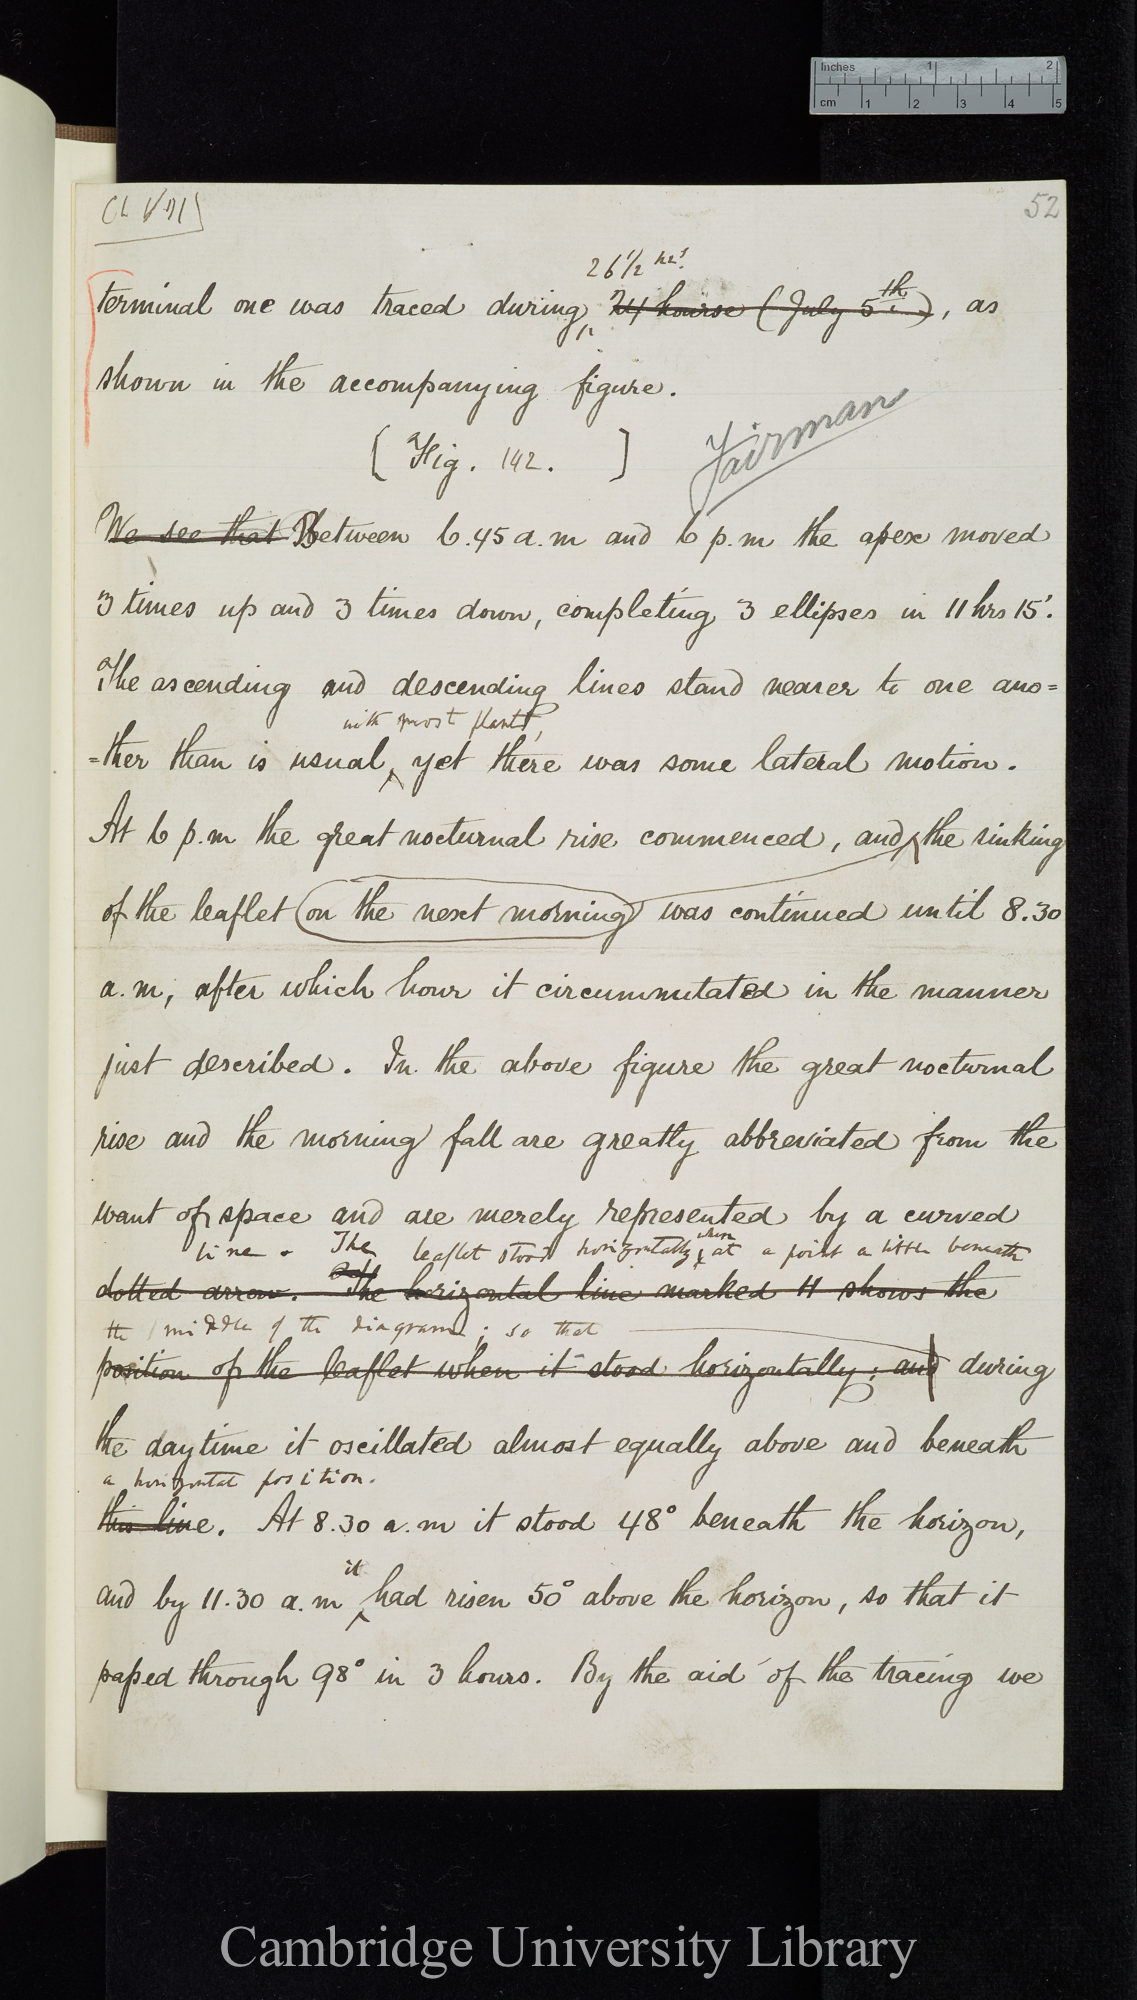 Inches 1 2
cm 1 2 3 4 5
Ch VII
52
26 1/2 hrs.
terminal one was traced during 24 hourse (July 5th), as
shown in the accompanying figure.
Fairman
[Fig. 142. ]
We see that Between 6.45 a.m and 6 p.m the apex moved
3 times up and 3 times down, completing 3 ellipses in 11 hrs 15'.
The ascending and descending lines stand nearer to one ano=
with most plants,
=ther than is usual, yet there was some lateral motion.
At 6 p.m the great nocturnal rise commenced, and the sinking
of the leaflet on the next morning was continued until 8.30
a.m, after which hour it circummutated in the manner
just described. In the above figure the great nocturnal
rise and the morning fall are greatly abbreviated from the
want of space and are merely represented by a curved
line. The leaflet stood horizontally when at a point a little beneath
dotted arrow. The horizontal line marked H shows the
the middle of the diagram; so that
position of the leaflet when it stood horizontally; and during
the daytime it oscillated almost equally above and beneath
a horizontal position.
this line. At 8.30 a.m it stood 48° beneath the horizon,
it
and by 11.30 a.m had risen 50° above the horizon, so that it
passed through 98° in 3 hours. By the aid of the tracing we
Cambridge University Library